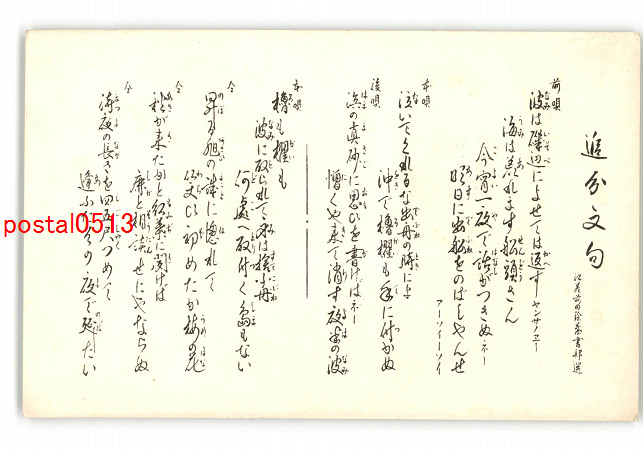 追分文句
江差町の絵葉書部選
前唄
波は磯辺によせては返す ヤンサノエー
海は荒れます船頭さん
今宵一夜で話がつきぬネー
明日に出船をのばしやんせ
アーソイーソイ
本唄
泣いてくれるな出舟の時によ
沖で櫓櫂も手に付かぬ
後唄
浜の真砂に思ひを書けばネー
憎くや来て消す夜半の波
本唄
櫓も櫂も
波に取られて身は捨小舟
何處へ取付く島もない
仝
昇る旭の
に惚れて
初めたか梅の花
仝
秋が来た
と
に聞けば
鹿と相談せにやならぬ
仝
夜の長さを四五尺つめて
逢ふ
の夜で
たい
postal0513